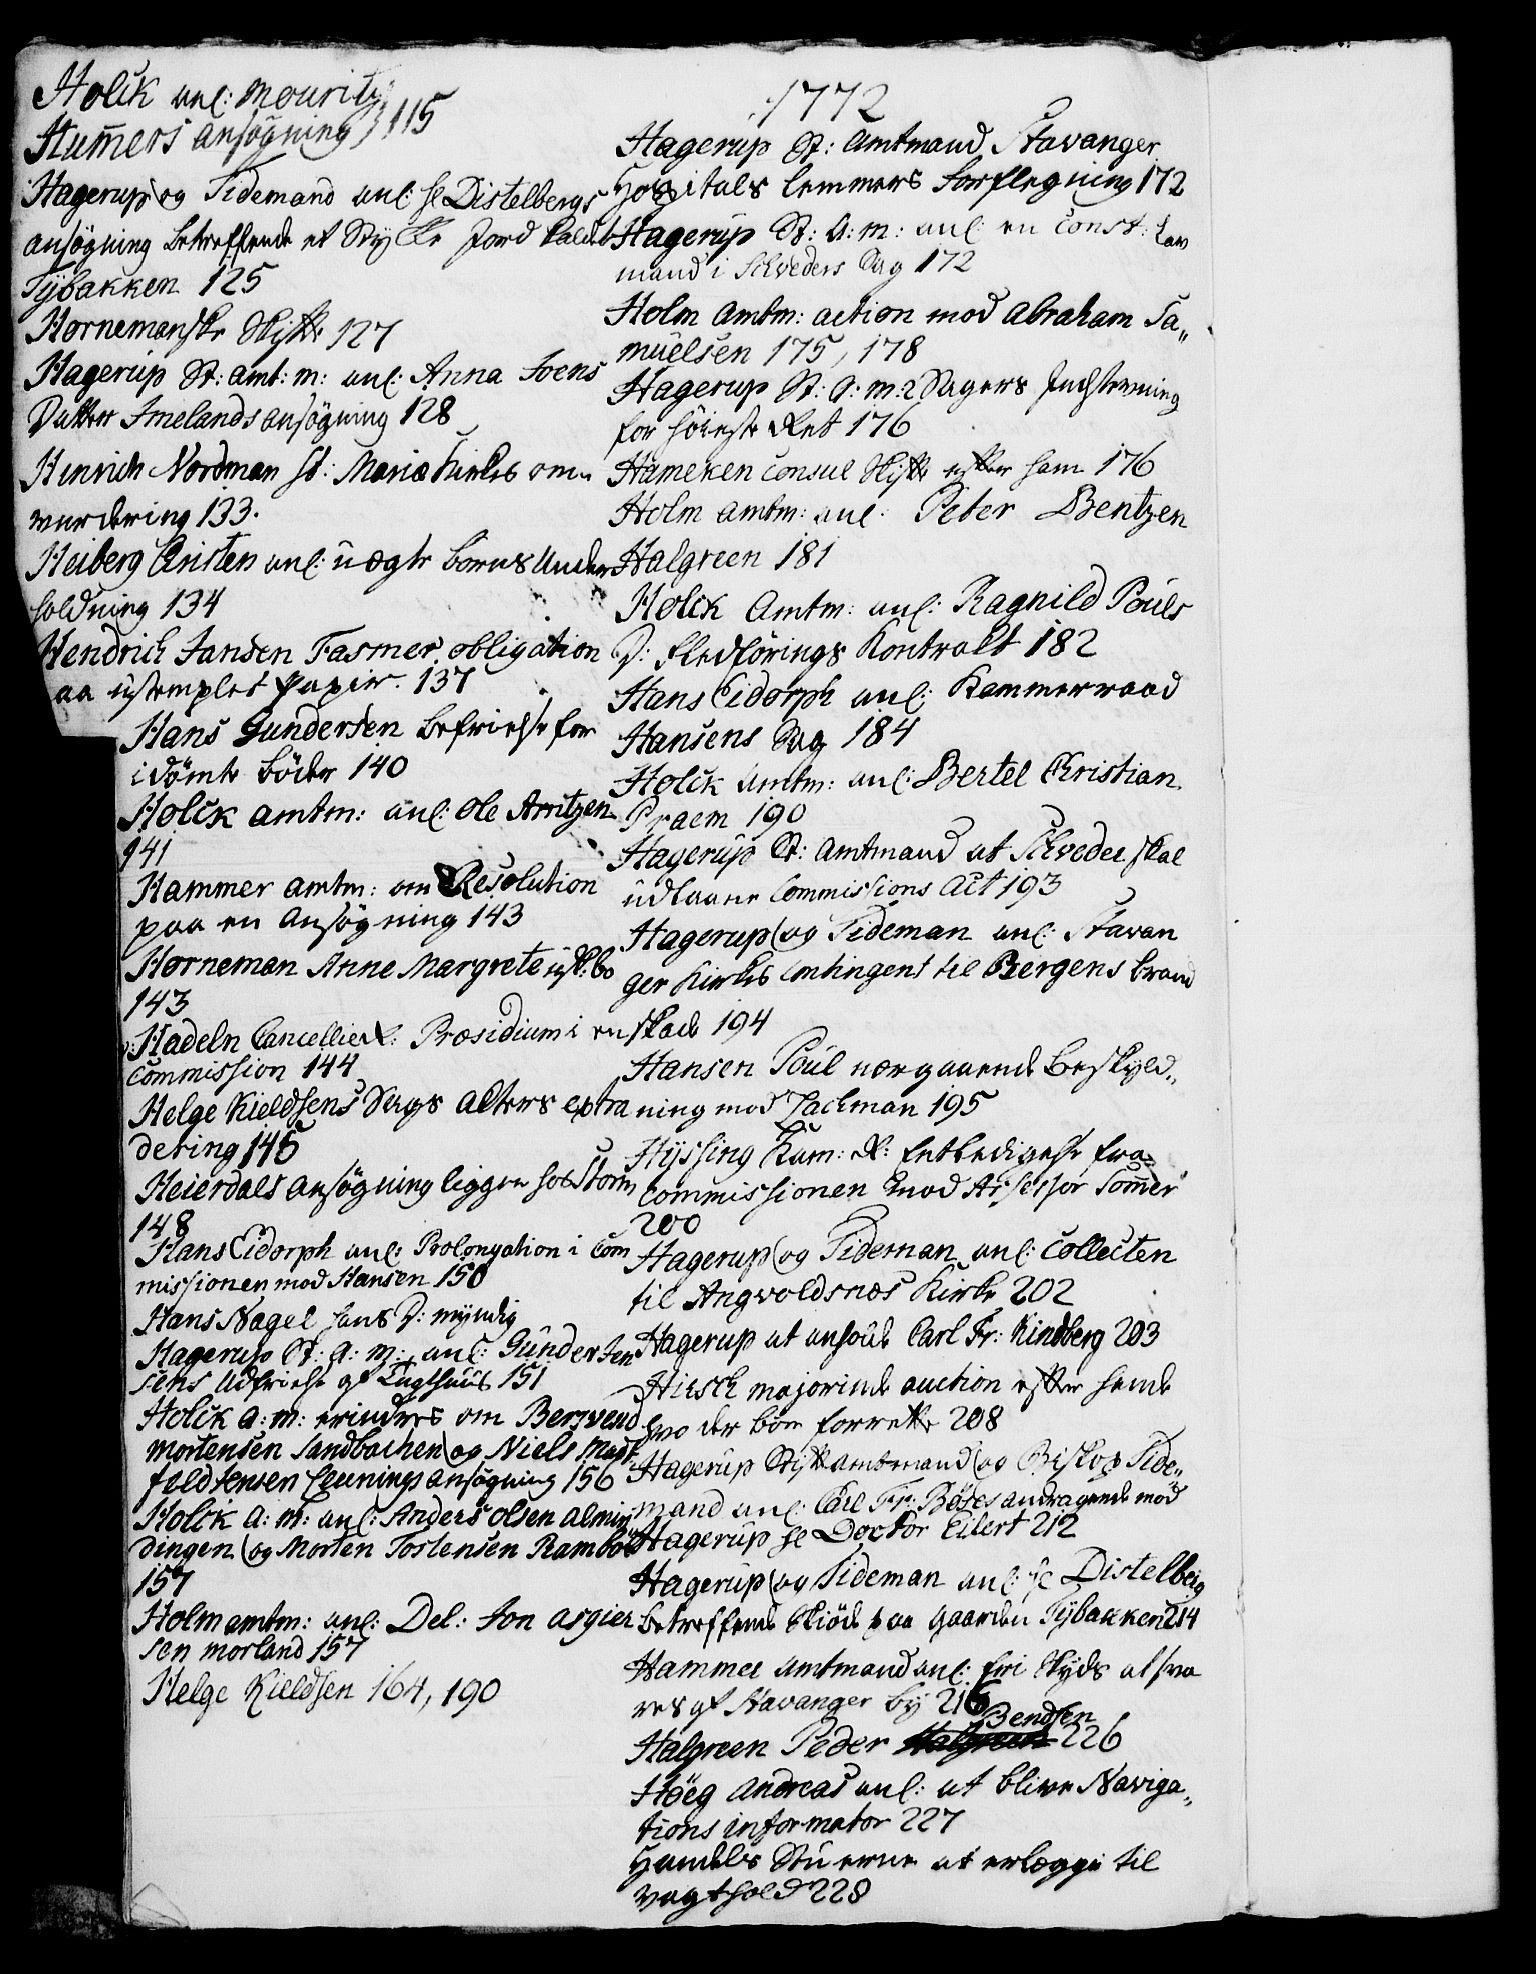 Holck anl: Mouritz
Hum̅ers ansøgning 115
Hagerup og Tidemand anl: Sl Distelbergs
ansøgning betreffende et Stykke Jord kaldet
Tÿbakken 125
Hornemanske Skifte 127
Hagerup St: amt: m: anl: Anna Joens
Datter Imelands ansøgning 128
Hinrich Nordman St: Mariæ Kirkes om-
vurdering 133.
Heiberg Christen anl: uægte børns Under
holdning 134
Hendrich Jansen Fasmer obligation
paa ustemplet Papir. 137
Hans Gundersen befrielse for
idømte bøder 140
Holck amtm: anl: Ole Arntzen
141
Hammer amtm: om Resolution
paa en Ansøgning 143
Horneman Anne Margrete
143
v: Hadeln Cancellie R: Præsidium i en
Commission 144
Helge Kieldsens Sags Acters extra
dering 145
Heierdals ansøgning ligger hos Storm
148
Hans Eidorph anl: Prolongation i Com
missionen mod Hansen 150
Hans Nagel hans D: myndig
Hagerup St: A: m: anl: Gunder Jen
sens Udfrielse af Tugthuus 151
Holck A: m: erindres om Berwend
Mortensen Sandbachen og Niels
Jensen ansøgning 156
Holck A: m: anl: Anders Olsen Almin
dingen og Morten Tostensen
157
Holm amtm: anl: Del: Jon Asgier
sen Morland 157
Helge Kieldsen 164, 190
1772
Hagerup St: Amtmand Stavanger
Hospitals Lemmers Forflegning 172
Hagerup St: A: m: anl: en Const: Lav
mand i Schveders Sag 172
Holm Amtm: action mod Abraham Sa„
muelsen 175, 178
Hagerup St: A: m: 2 Sagers Indstevning
for Høieste Ret 176
Hameken Consul Skifte efter ham 176
Holm amtm: anl: Peter Bentzen
Halgreen 181
Holck Amtm: anl: Ragnild Pouls
D: Fledførings Kontrakt 182
Hans Eidorph anl: Kammerraad
Hansens Sag 184
Holck Amtm: anl: Bertel Christian
Praem 190
Hagerup St: Amtmand at Schveder skal
udlaane Commissions Act 193
Hagerup og Tideman anl: Stavan
ger Kirkes Contingent til Bergens brand
skade 194
Hansen Poul nærgaaende Beskyld„
ning mod Zachman 195
Hyssing Kam: R: Entledigelse fra
Commissionen mod Assessor Som̅er
200
Hagerup og Tideman anl: Collecten
til Angvoldsnæs Kirke 202
Hagerup at ansøde Carl Fr: Kindberg 203
Hirsch majorinde auction efter hende
hvo der bør forrette 208
Hagerup Stiftamtmand og Biskop Tide„
mand anl: Carl Fr: andragende mod
Hagerup Sl Doctor Eilert 212
Hagerup og Tideman anl: Sl Distelberg
betreffende Skiøde paa Gaarden Tÿbakken 214
Hammer amtmand anl: fri Skyds at sva
res af Stavanger by 216
Bendsen
Halgreen Peder 226
Høeg Andreas anl: at blive Naviga„
tions informator 227
Handels Stuerne at erlægge til
Vagthold 228